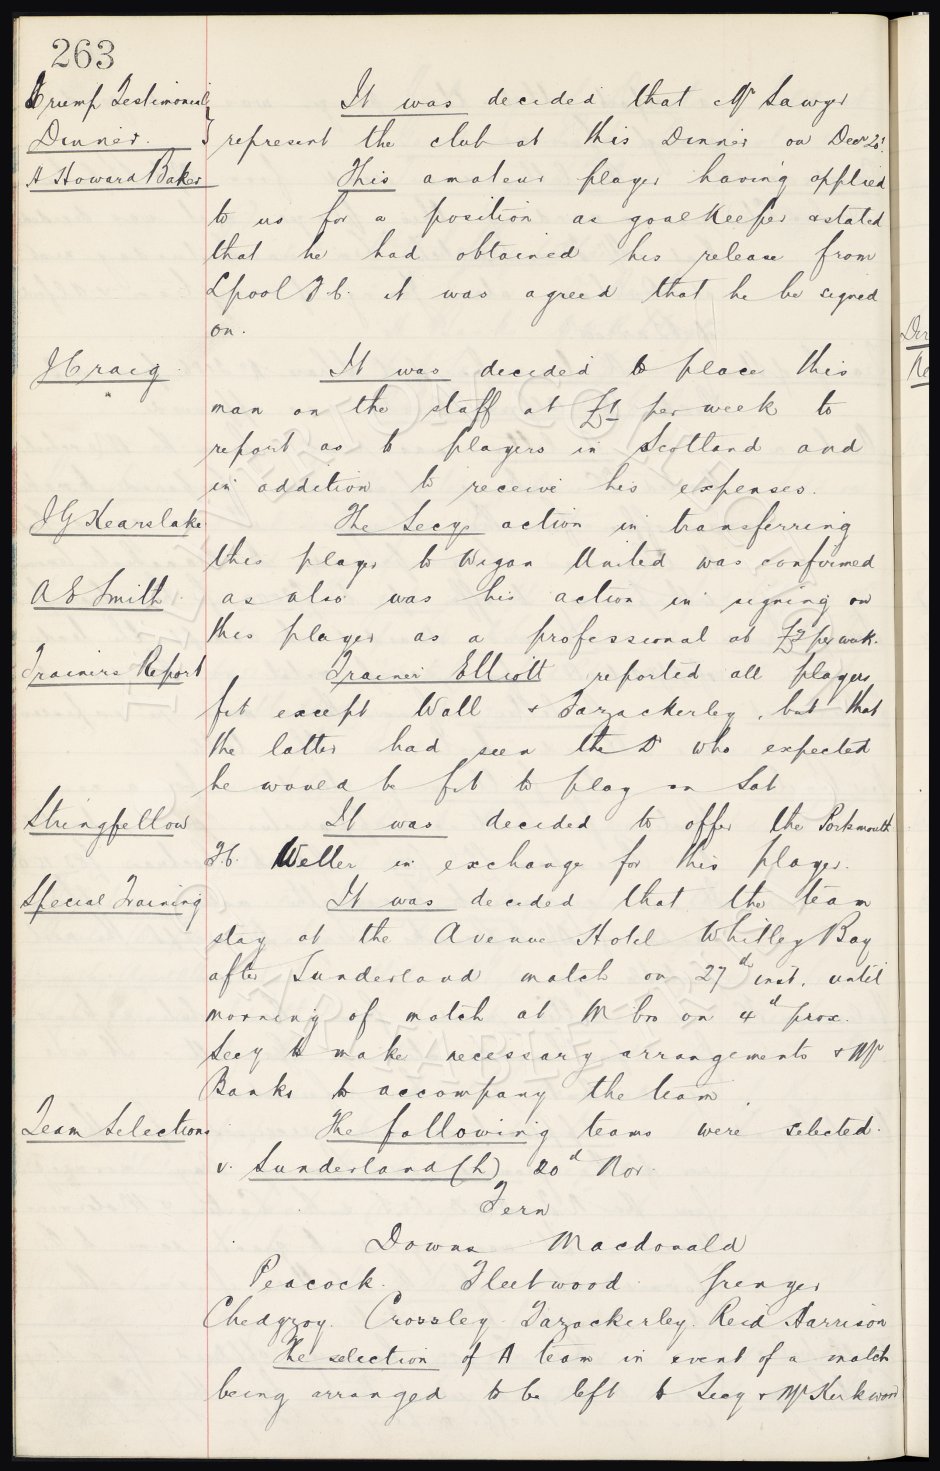 263
Crump Testimonial It was decided that Mr Sawyer
Dinner. } represent the club at this Dinner on Decr 20th.
A Howard Baker This amateur player having applied
to us for a position as goalkeeper & stated
that he had obtained his release from
Lpool F b. it was agreed that he be signed
on.
J Craig It was decided to place this
man on the staff at £1 per week to
report as to players in Scotland and
in addition to receive his expenses.
J G Kearslake The Secys action in transferring
this player to Wigan United was confirmed
A E Smith as also was his action in signing on
this player as a professional at £2 per week.
Trainers Report Trainer Elliott reported all players
fit except Wall & Fazackerley, but that
the latter had seen the Dr who expected
he would be fit to play on Sat
Stringfellow It was decided to offer the Portsmouth
F b. Weller in exchange for this player.
Special Training It was decided that the team
stay at the Avenue Hotel Whitley Bay
after Sunderland match on 27th inst. until
morning of match at M bro on 4th prox.
Secy to make necessary arrangements & Mr
Banks to accompany the team.
Team Selections The following teams were selected.
v. Sunderland (h) 20th Nov.
Fern
Downs Macdonald
Peacock. Fleetwood Grenyer
Chedgzoy. Crossley. Fazackerley. Reid Harrison
The selection of A team in event of a match
being arranged to be left to Secy & Mr Kirkwood